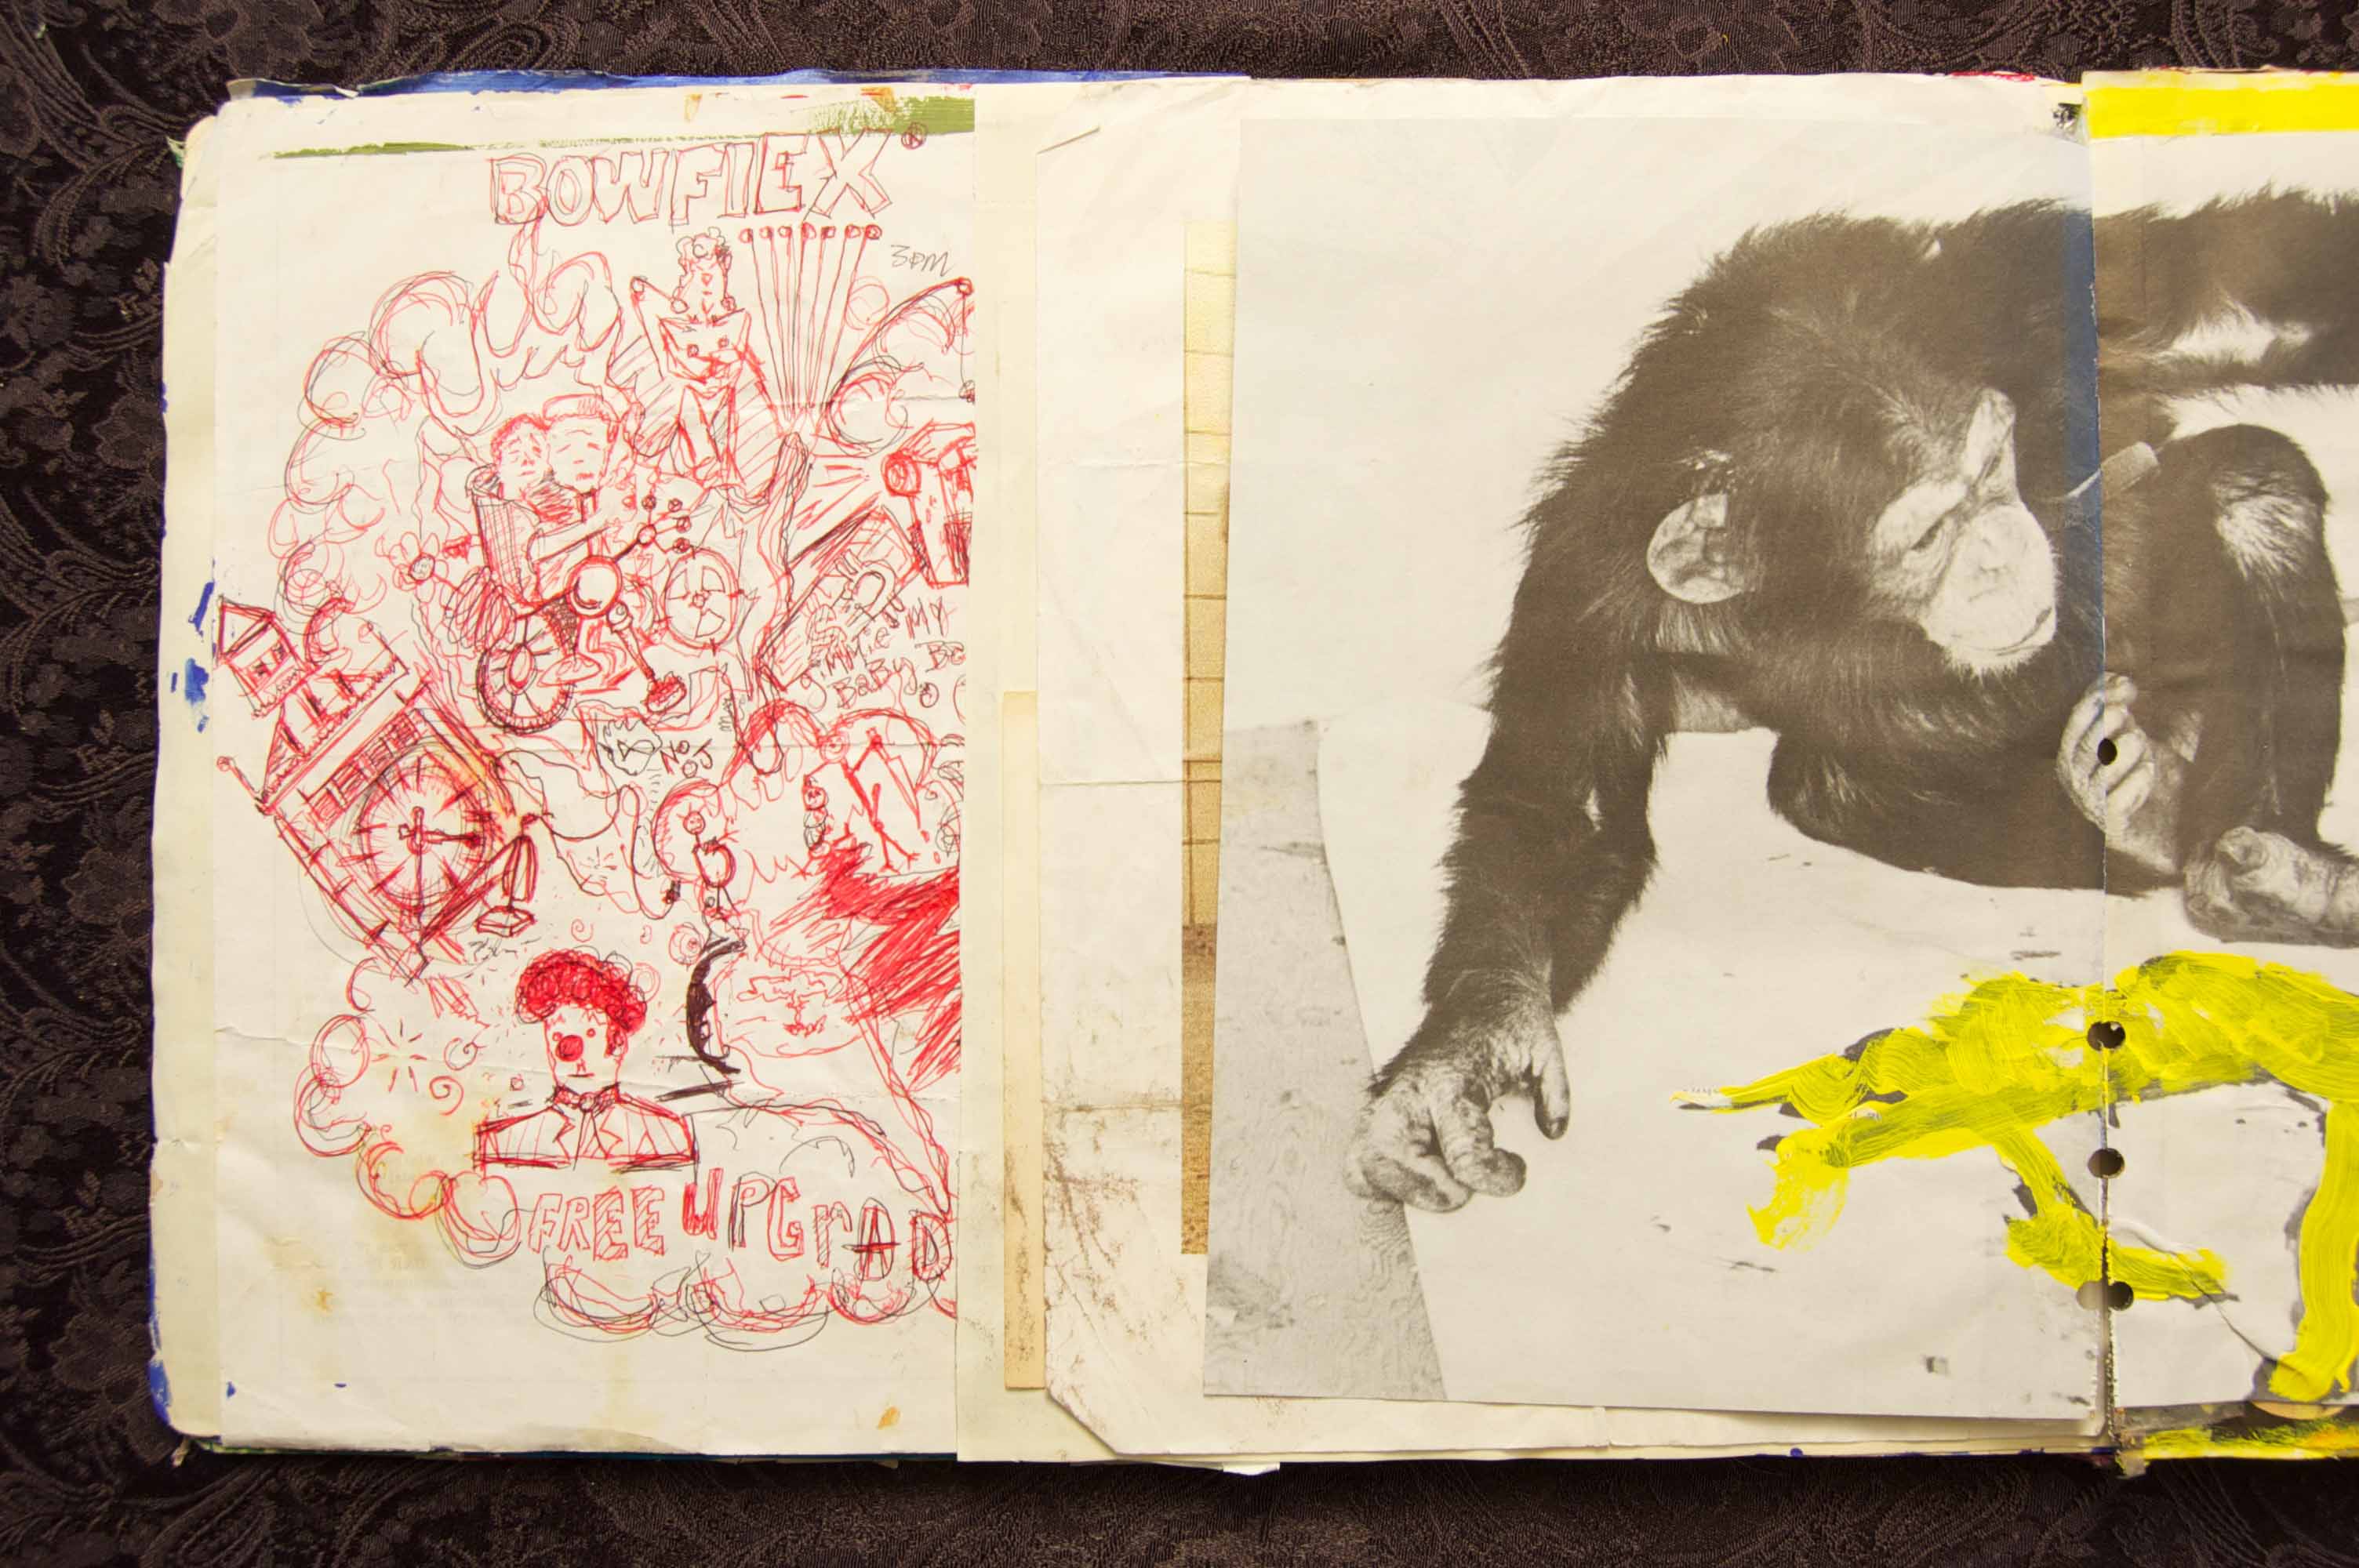 BOWFlEX®
3pm
gimmie MY
BaBy
NO
OJ
FREE UPGrAD